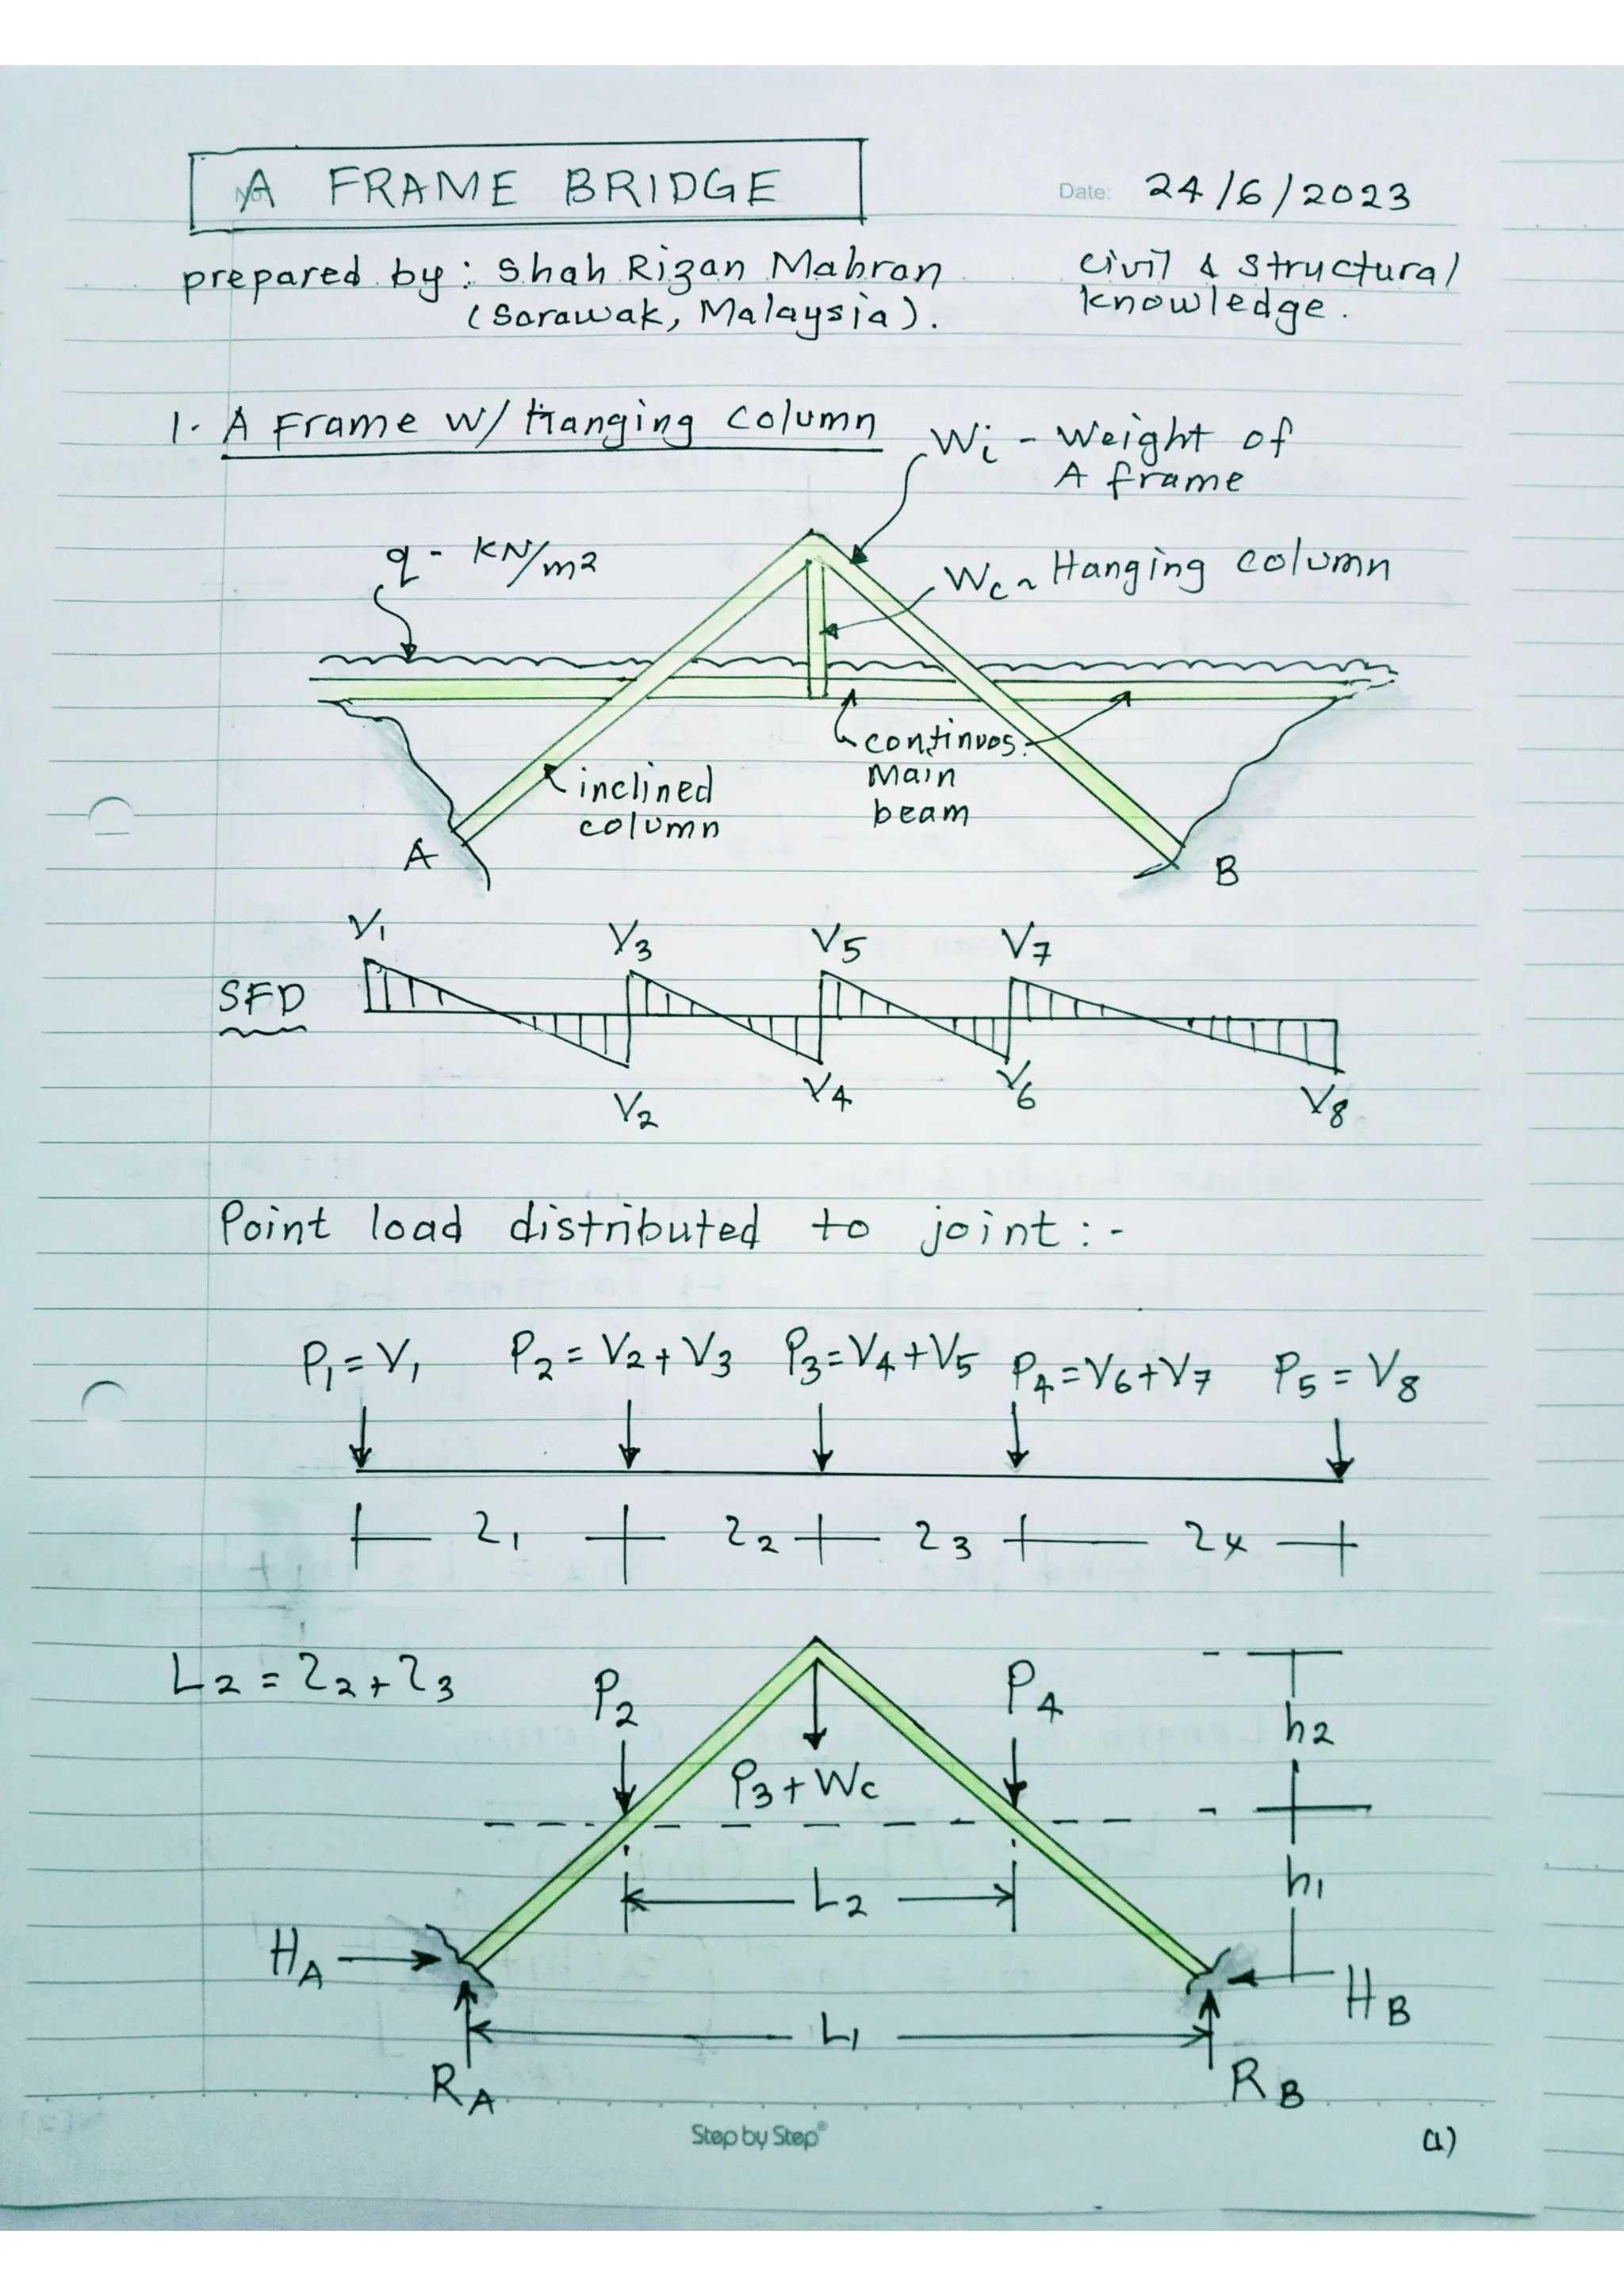 A FRAME BRIDGE
No.
Date: 24/6/2023
prepared by: Shah Rizan Mahran
(Sarawak, Malaysia).
civil & structural
knowledge.
1. A Frame w/ Hanging column
Wi - Weight of
A frame
q - kN/m2
Wc ~ Hanging column
continuos
Main
beam
inclined
column
A
B
V1
V3
V5
V7
SFD
V2
V4
V6
V8
Point load distributed to joint :-
P1 = V1
P2 = V2 + V3
P3 = V4 + V5
P4 = V6 + V7
P5 = V8
L2 = 22 + 23
21
22
23
24
P2
P4
h2
P3 + Wc
L2
h1
HA
HB
L1
RA
RB
Step by Step®
(1)